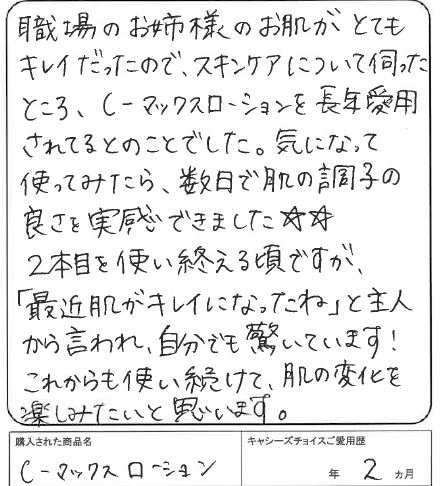 職場のお姉様のお肌がとても
キレイだったので、スキンケアについて伺った
ところ、C-マックスローションを長年愛用
されてるとのことでした。気になって
使ってみたら、数日で肌の調子の
良さを実感できました☆☆
2本目を使い終える頃ですが、
「最近肌がキレイになったね」と主人
から言われ、自分でも驚いています!
これからも使い続けて、肌の変化を
楽しみたいと思います。
購入された商品名
C-マックスローション
キャシーズチョイスご愛用歴
年 2 ヵ月